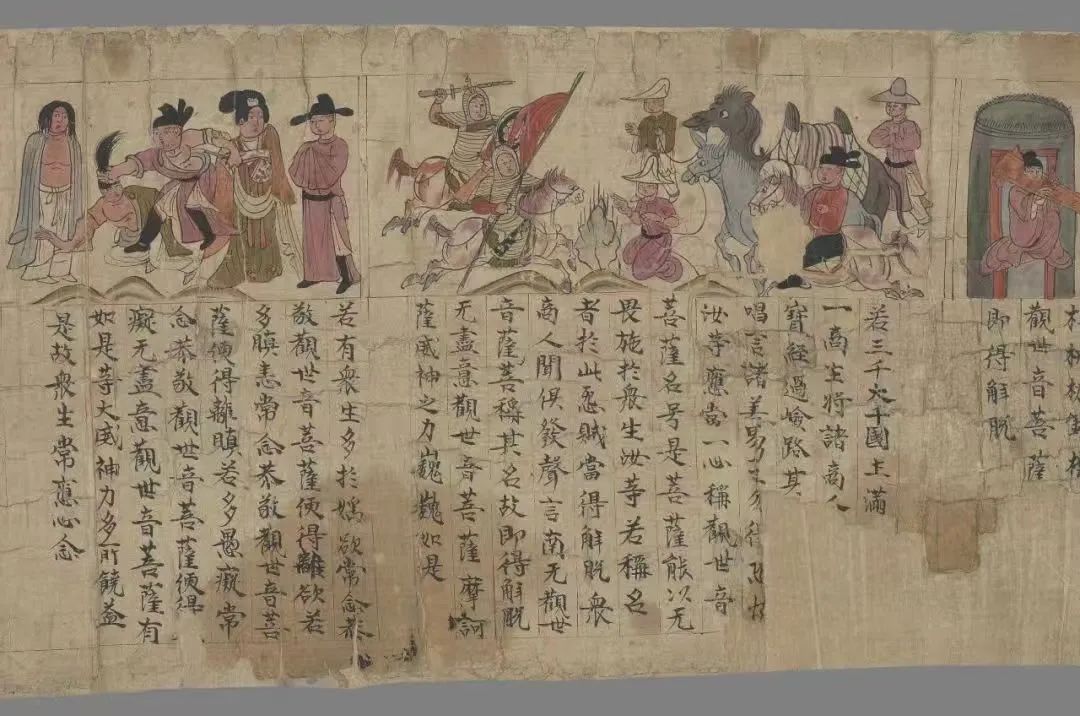 杻械枷鎖
觀世音菩薩
即得解脫
若三千大千國土滿
一商主將諸商人
寶經過嶮路其
唱言諸善男子勿得恐怖
汝等應當一心稱觀世音
菩薩名号是菩薩能以无
畏施於衆生汝等若稱名
者於此惡賊當得解脫衆
商人聞俱發聲言南无觀世
音菩薩稱其名故即得解脫
无盡意觀世音菩薩摩訶
薩威神之力巍巍如是
若有衆生多於婬欲常念恭
敬觀世音菩薩便得離欲若
多瞋恚常念恭敬觀世音菩
薩便得離瞋若多愚癡常
念恭敬觀世音菩薩便得
癡无盡意觀世音菩薩有
如是等大威神力多所饒益
是故衆生常應心念